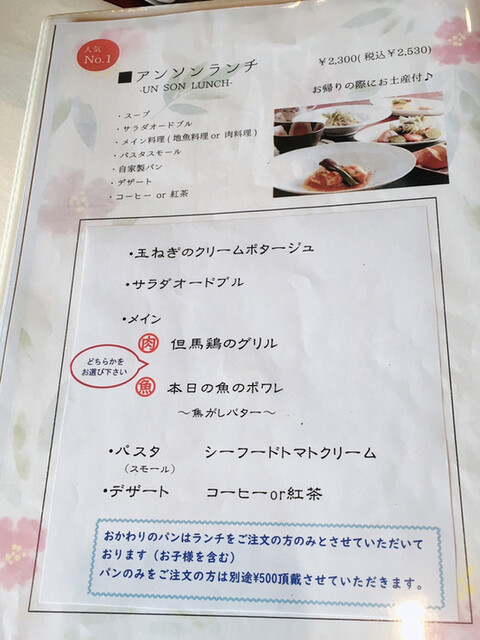 人気
No.1
■アンソンランチ
-UN SON LUNCH-
¥2,300(税込¥2,530)
お帰りの際にお土産付♪
・スープ
・サラダオードブル
・メイン料理(地魚料理or 肉料理)
・パスタスモール
・自家製パン
・デザート
・コーヒー or 紅茶
・玉ねぎのクリームポタージュ
・サラダオードブル
・メイン
肉 但馬鶏のグリル
どちらかを
お選び下さい
魚 本日の魚のポワレ
～焦がしバター～
・パスタ シーフードトマトクリーム
(スモール)
・デザート コーヒーor紅茶
おかわりのパンはランチをご注文の方のみとさせていただいて
おります(お子様を含む)
パンのみをご注文の方は別途¥500頂戴させていただきます。